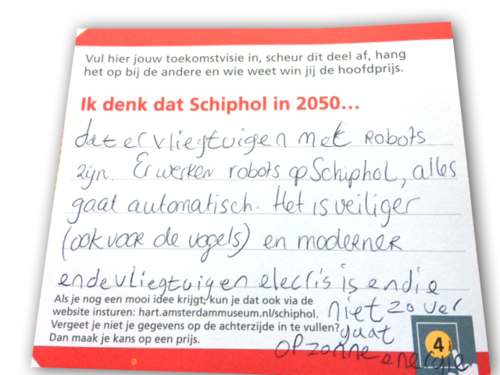 Vul hier jouw toekomstvisie in, scheur dit deel af, hang
het op bij de andere en wie weet win jij de hoofdprijs.
Ik denk dat Schiphol in 2050...
dat er vliegtuigen met ROBOTS
zijn. Er werken robots op Schiphol, alles
gaat automatisch. Het is veiliger
(ook voor de vogels) en moderner
en de vliegtuigen electris is en die
Als je nog een mooi idee krijgt, kun je dat ook via de
website insturen: hart.amsterdammuseum.nl/schiphol.
Vergeet je niet je gegevens op de achterzijde in te vullen?
Dan maak je kans op een prijs.
niet zo ver
gaat
op zonne energie
4